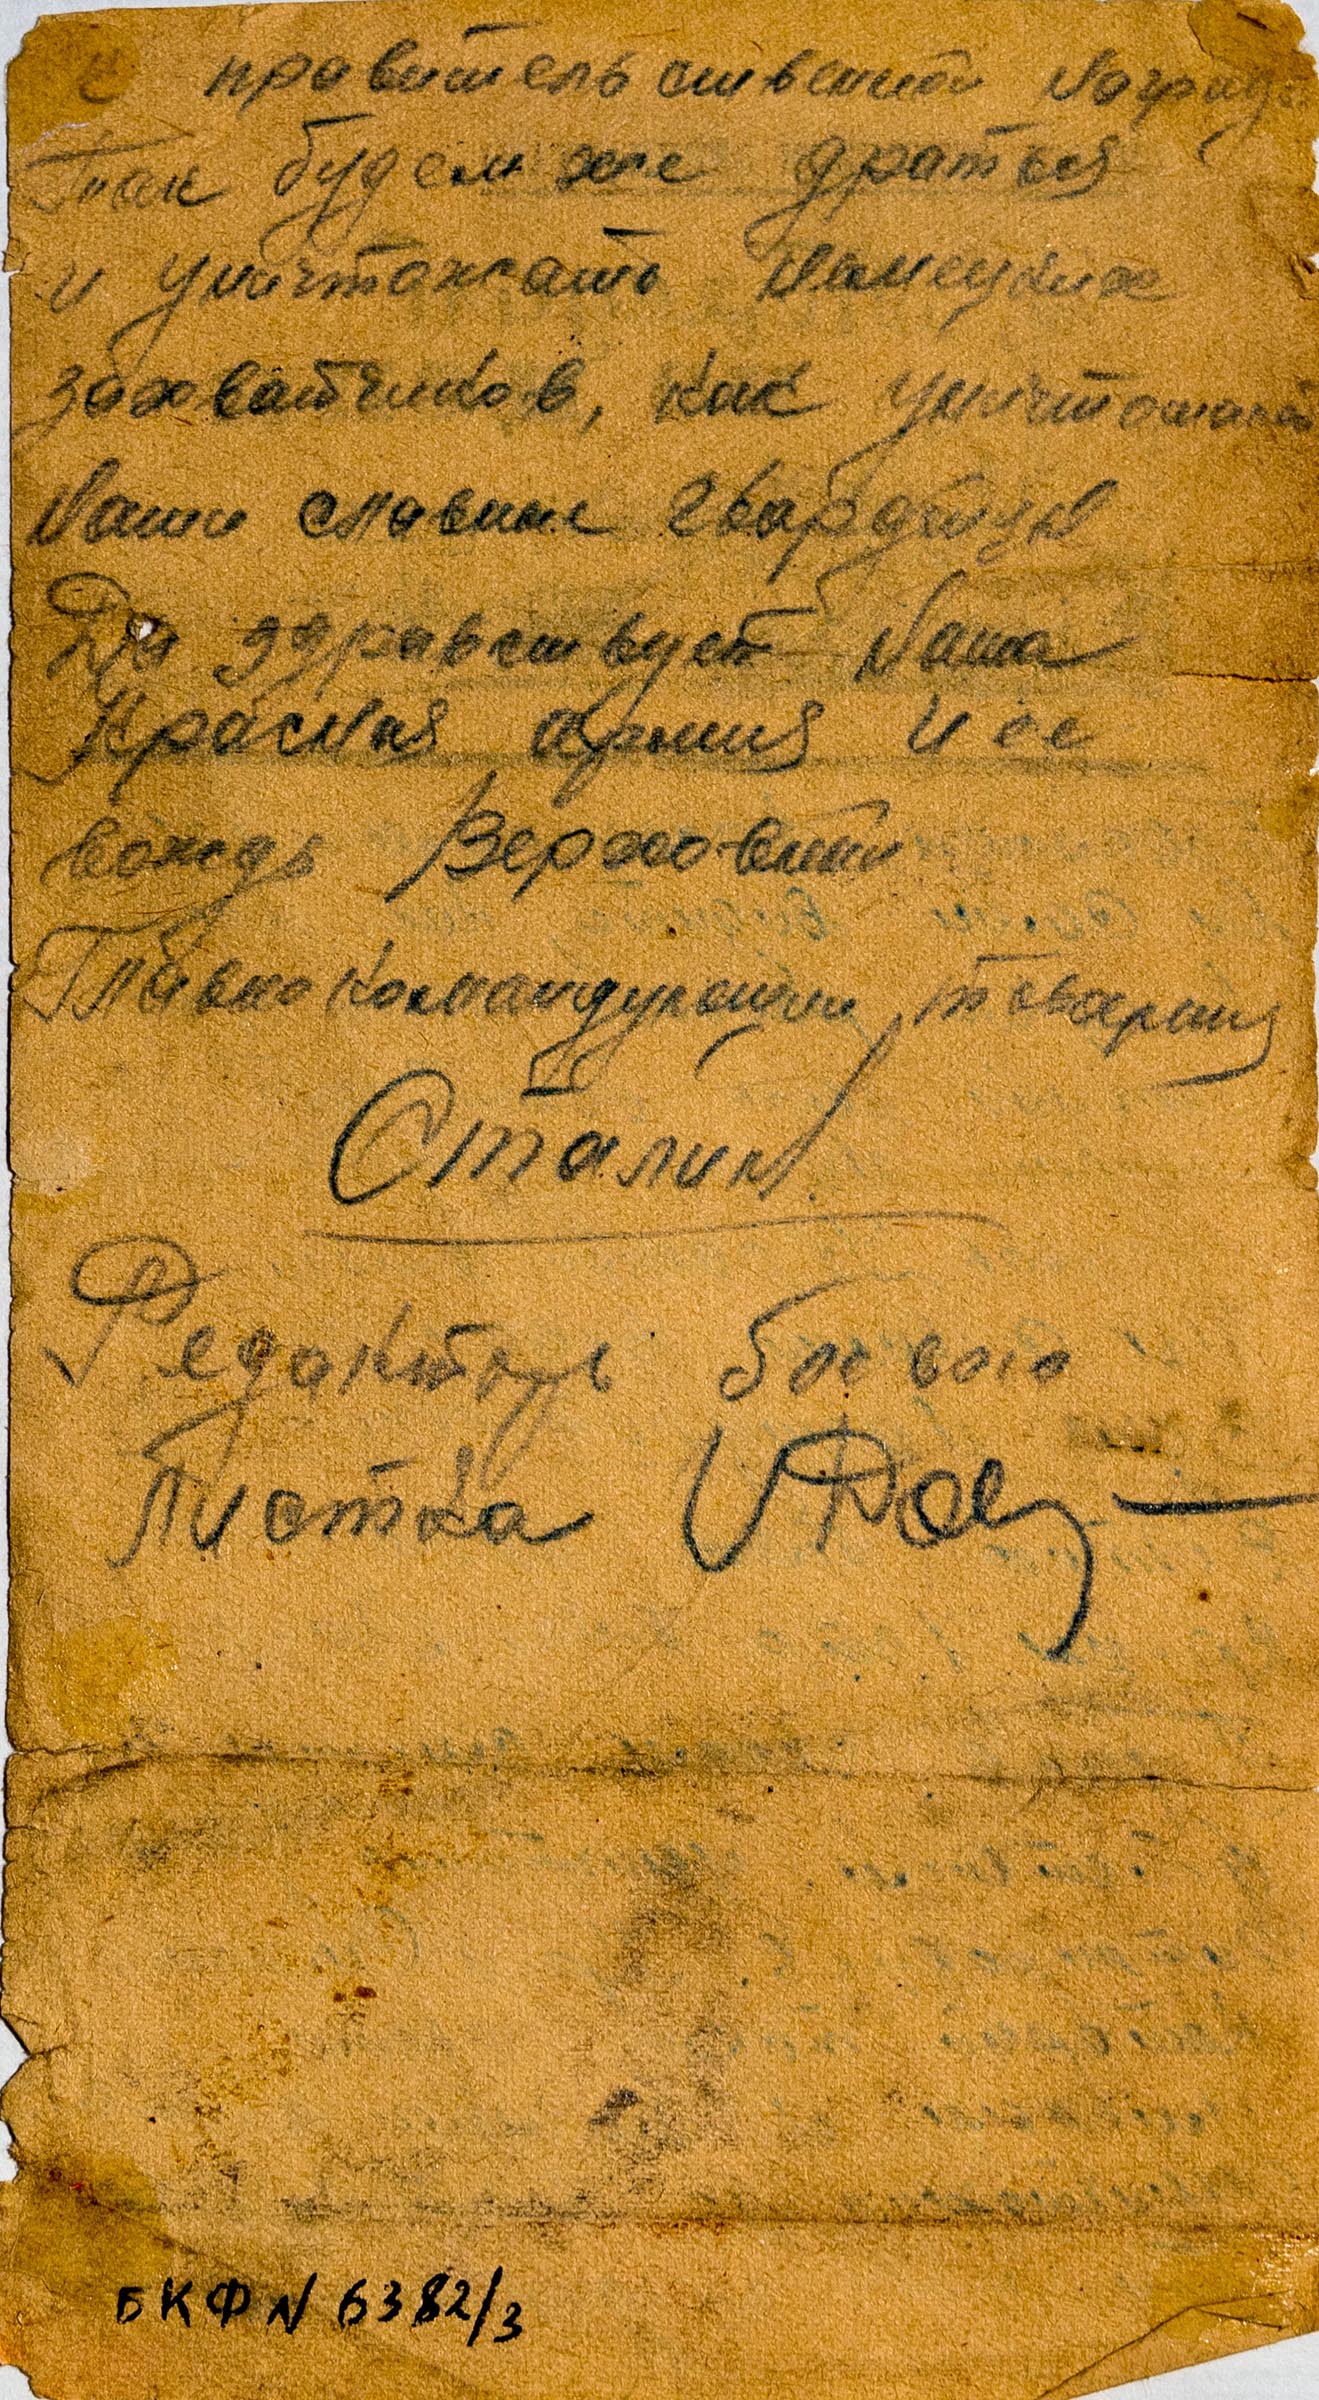 к правительственной награде
Так будем же драться
и уничтожать немецких
захватчиков, как уничтожают
наши славные гвардейцы
Да здравствует наша
Красная армия и ее
вождь Верховный
Главнокомандующий товарищ
Сталин.
Редактор боевого
листка
БКФ N 6382/3